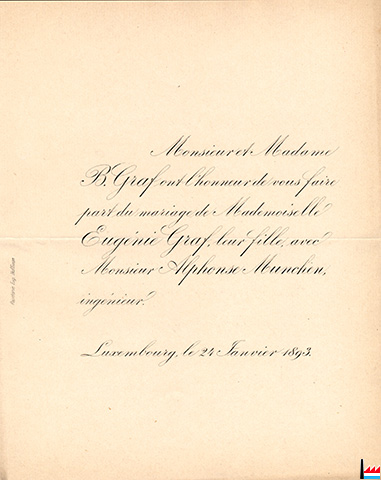 Monsieur et Madame
B. Graf ont l'honneur de vous faire
part du mariage de Mademoiselle
Eugénie Graf, leur fille, avec
Monsieur Alphonse Munchen,
ingénieur.
Luxembourg, le 24 Janvier 1893.